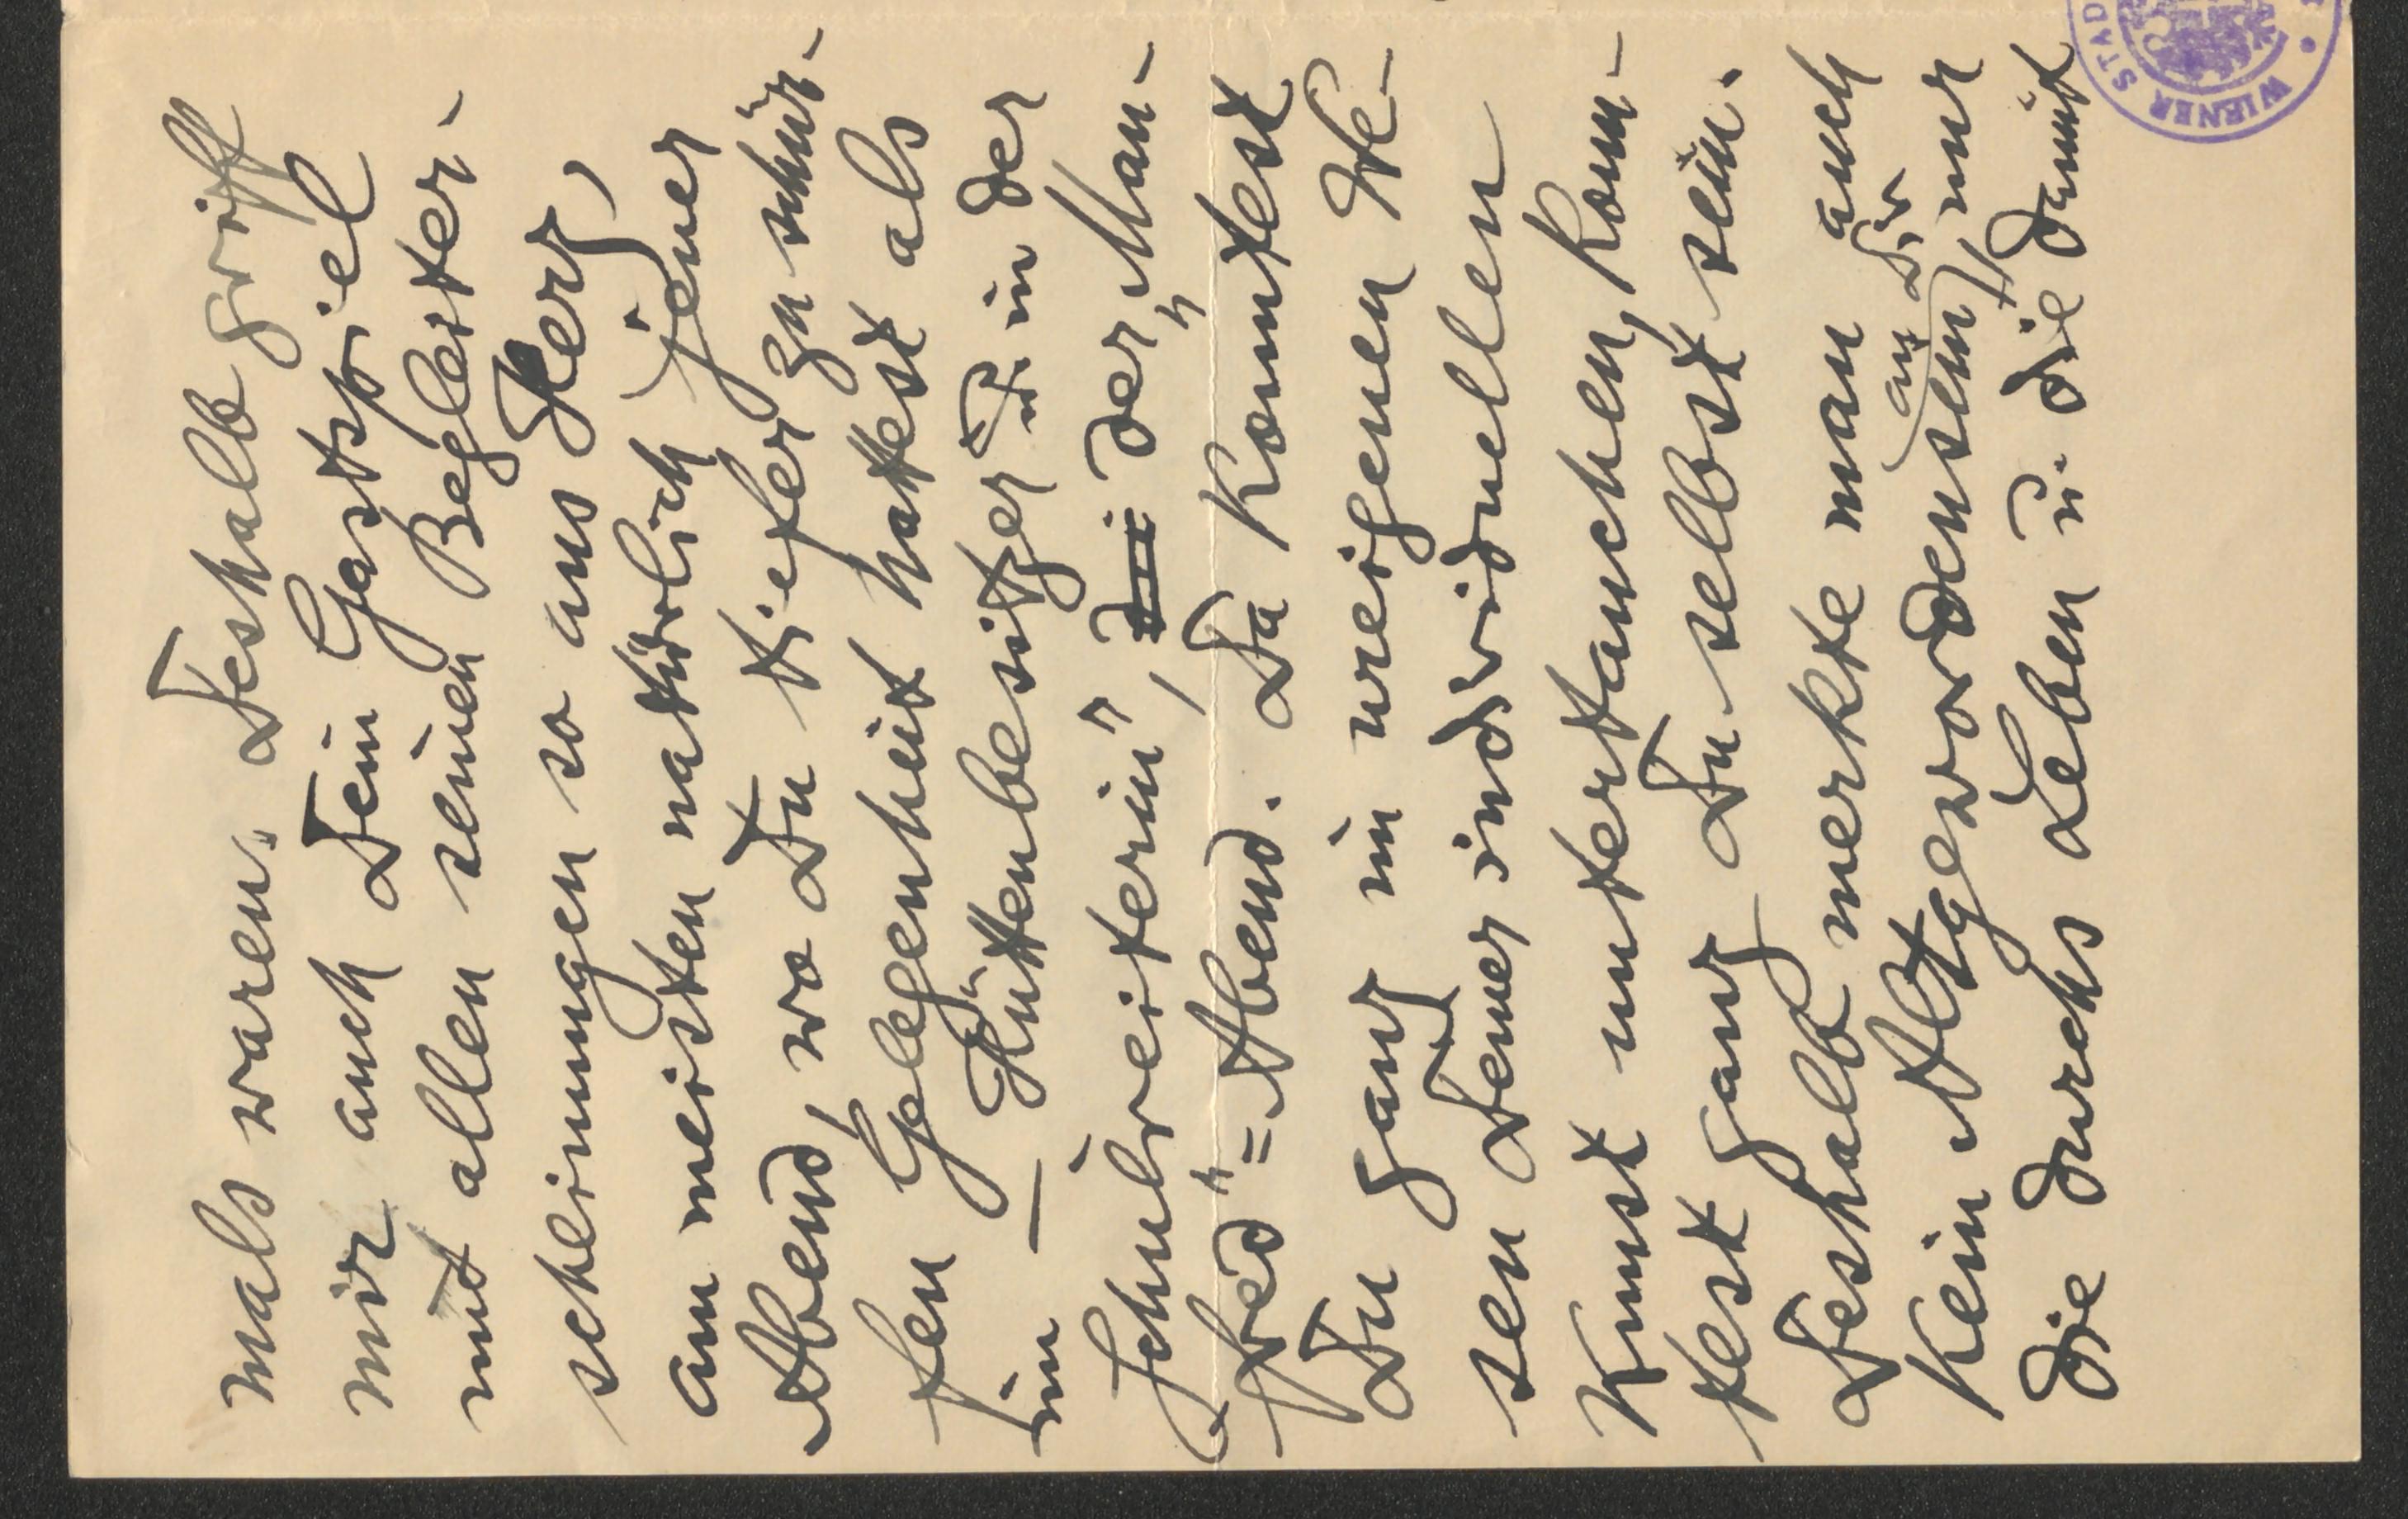 mals waren. Deshalb griff
mir auch Dein Gastspiel
mit allen seinen Begleiter-
scheinungen so ans Herz,
am meisten natürlich jener
Abend, wo Du tiefer zu schür-
fen Gelegenheit hattest als
im „Hüttenbesitzer“ u. in der
Schulreiterin“, der „Man-
fred“=Abend. Da konntest
Du ganz in
sen Deiner individuellen
Kunst untertauchen, konn-
test ganz Du selbst sein.
Deshalb merkte man auch
kein Altgewordensein an Dir, nur
die durchs Leben u. die damit
WIENER STAD